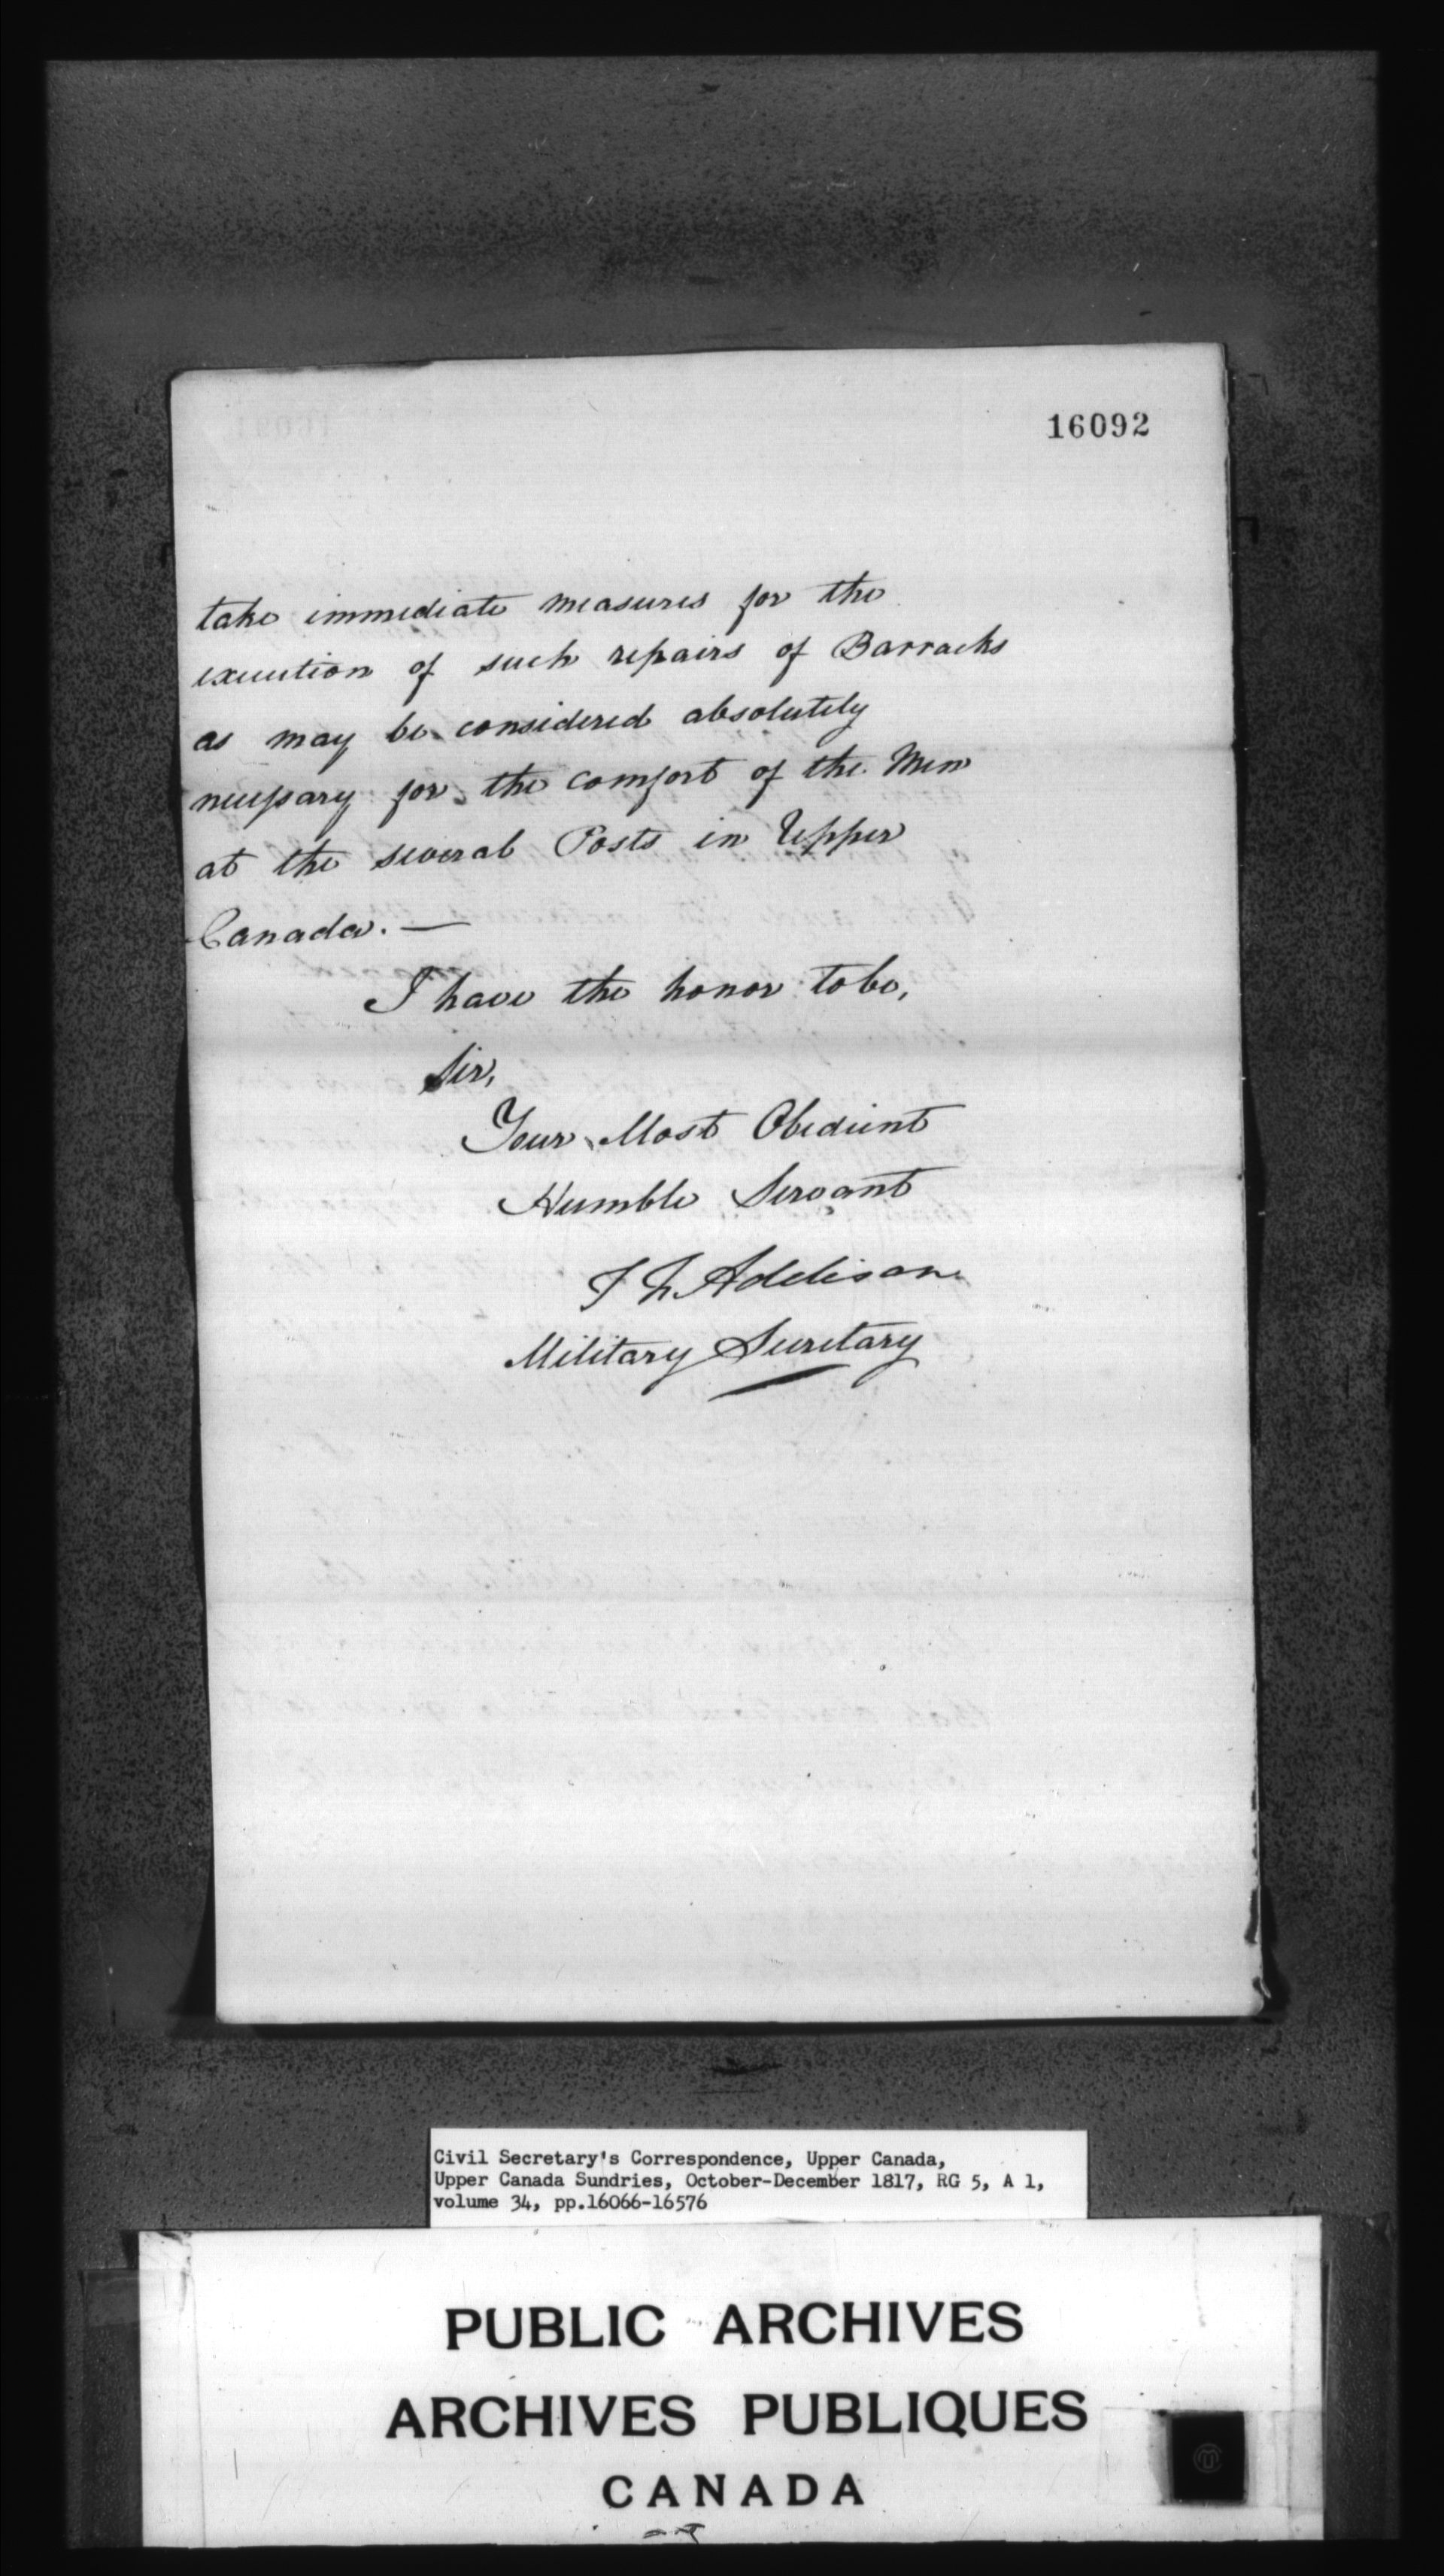 16092
take immediate measures for the
execution of such repairs of Barracks
as may be considered absolutely
necessary for the comfort of the Men
at the several Posts in Upper
Canada. —
I have the honor to be,
Sir,
Your Most Obedient
Humble Servant
T L Addison
Military Secretary
Civil Secretary's Correspondence, Upper Canada,
Upper Canada Sundries, October-December 1817, RG 5, A 1,
volume 34, pp.16066-16576
PUBLIC ARCHIVES
ARCHIVES PUBLIQUES
CANADA